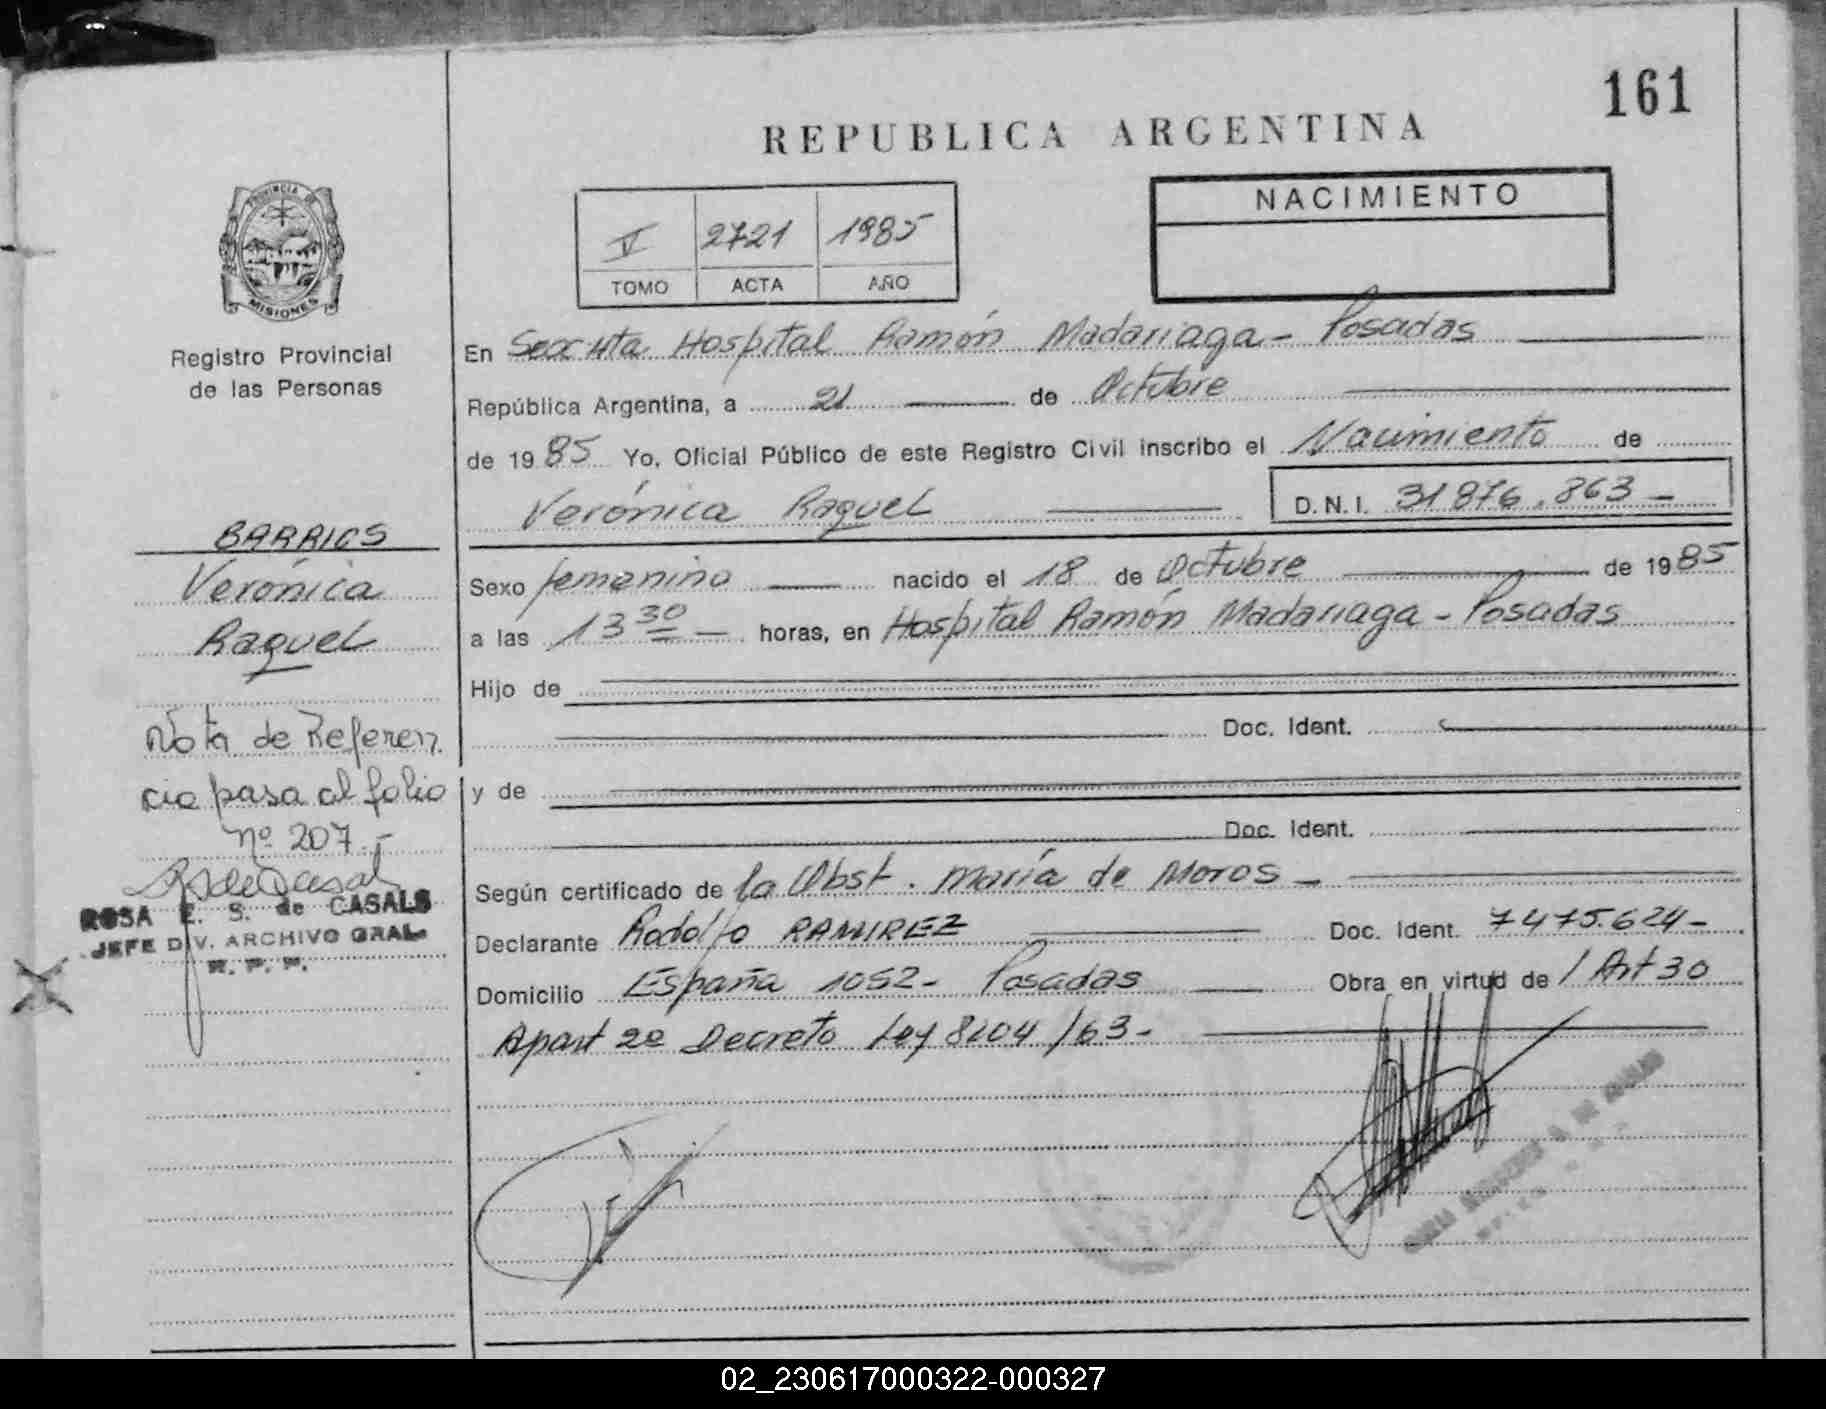 161
REPUBLICA ARGENTINA
PROVINCIA DE
MISIONES
Registro Provincial
de las Personas
V 2721 1985
TOMO ACTA AÑO
NACIMIENTO
En Hospital Ramón Madariaga - Posadas
República Argentina, a 21 de Octubre
de 1985 Yo, Oficial Público de este Registro Civil inscribo el Nacimiento de
Verónica Raquel D.N.I. 31876.863-
BARRIOS
Verónica
Raquel
Sexo femenino nacido el 18 de Octubre de 1985
a las 13 30 horas, en Hospital Ramón Madariaga - Posadas
Hijo de
Doc. Ident.
y de
Doc. Ident.
Nota de Referen
cia pasa al folio
nº 207.-
ROSA E. S. de CASALS
JEFE DIV. ARCHIVO GRAL.
R. P. P.
Según certificado de la Obst. María de Moros -
Declarante Rodolfo RAMIREZ Doc. Ident. 7475.624-
Domicilio España 1052- Posadas Obra en virtud de / Art 30
Apart 2º Decreto Ley 8204/63-
02_230617000322-000327